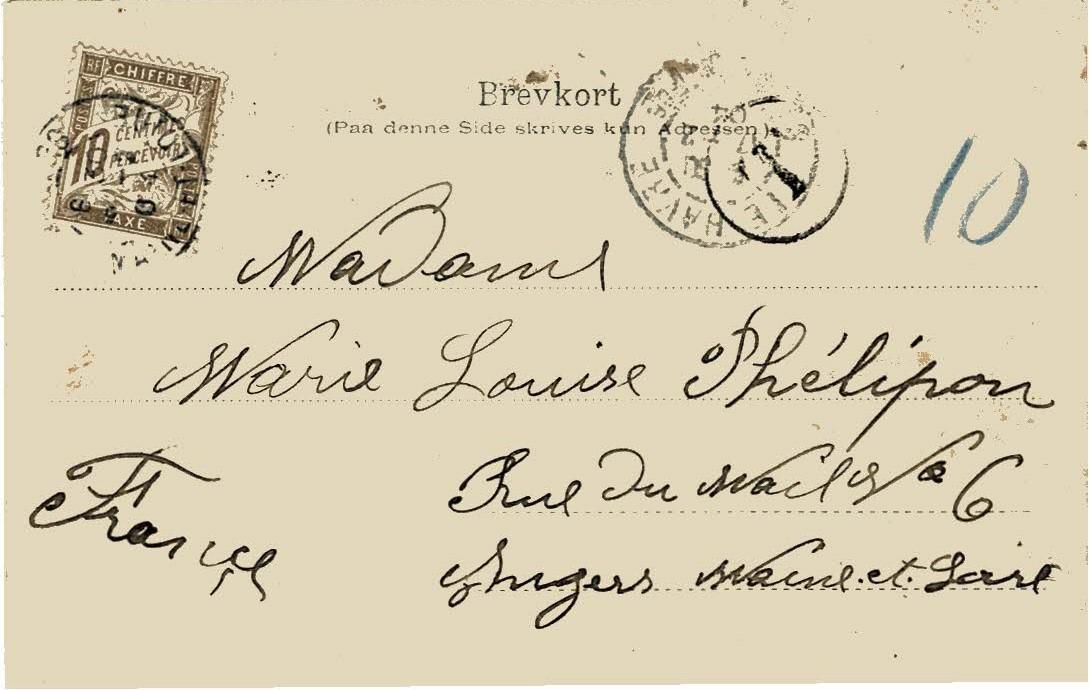 RF CHIFFRE
POSTES
10 CENTIMES
A PERCEVOIR
TAXE
Brevkort
(Paa denne Side skrives kun Adressen.)
HAVRE
T
10
Madame
Marie Louise Phélipon
France
Rue du Mail Nº 6
Angers Maine.et.Loire